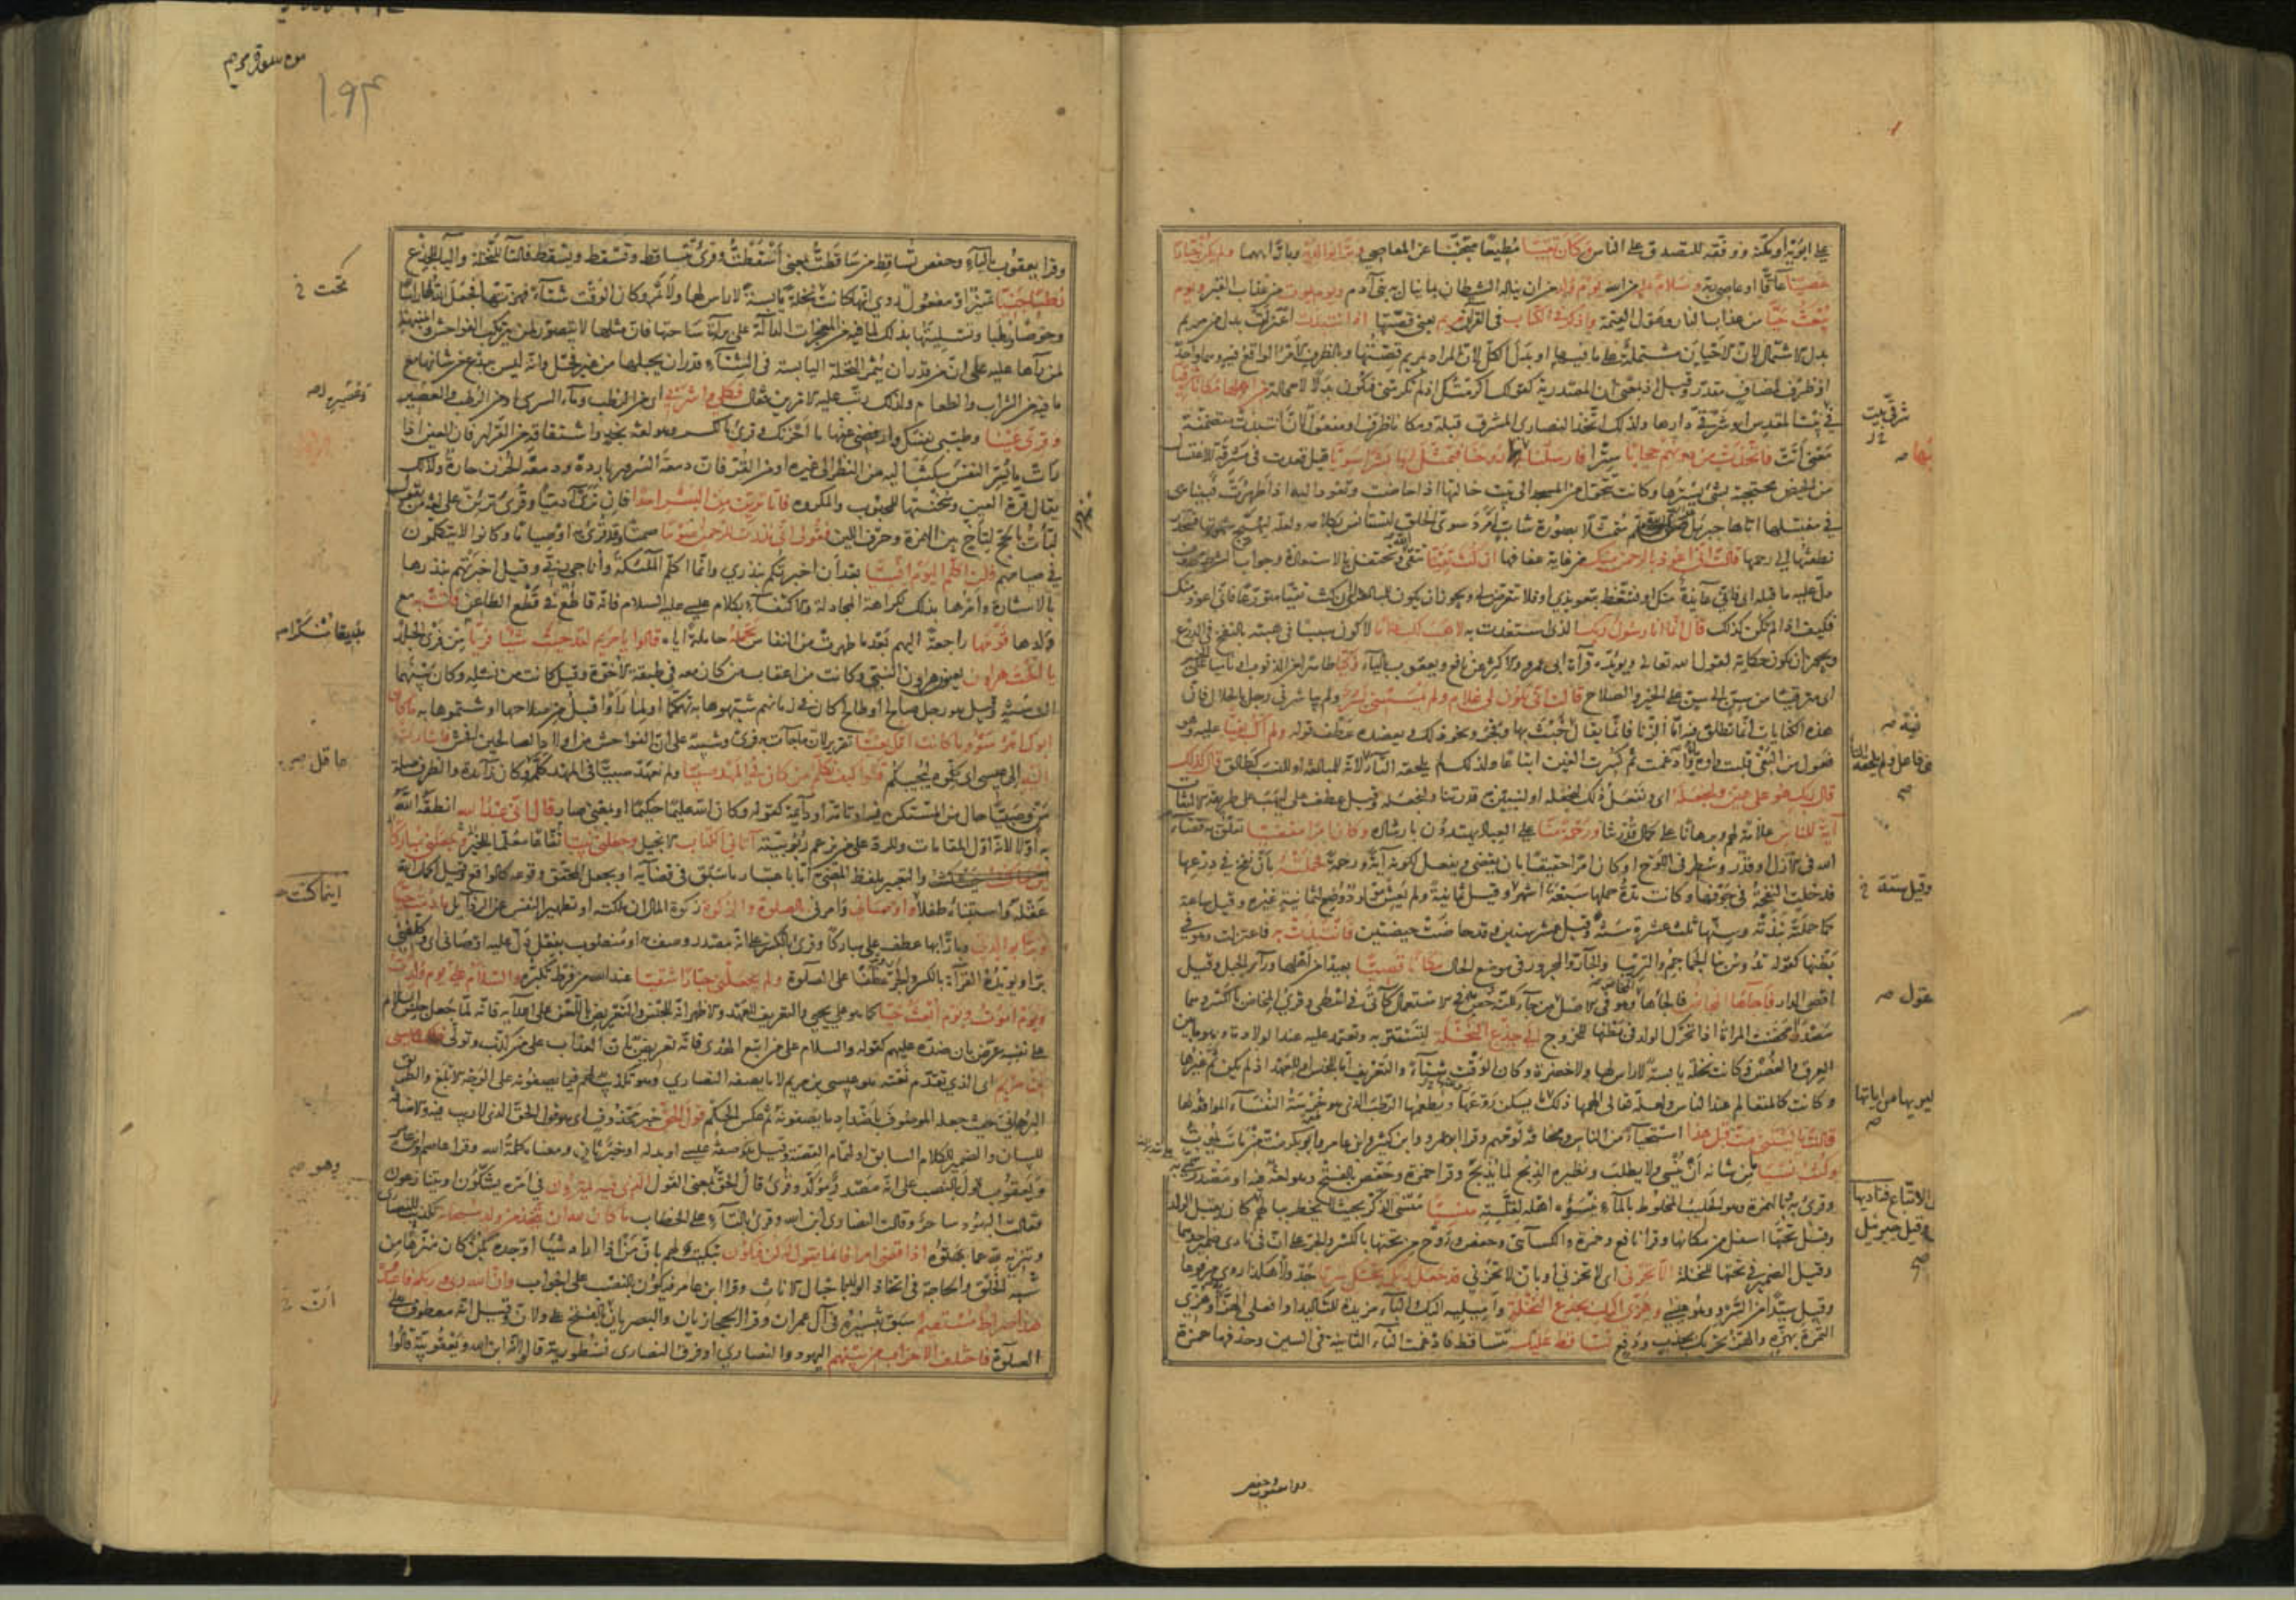 على ابويه او مكنه ووفقه للتصدق على الناس وكان تقيا مطيعا متجنبا عن المعاصى وبرا بوالديه وبارا بهما ولم يكن جبارا
عصيا عاقا او عاصى ربه وسلام عليه من الله يوم ولد من ان يناله الشيطان بما ينال به بنى آدم ويوم يموت من عذاب القبر ويوم
يبعث حيا من عذاب النار وهول القيمة واذكر فى الكتاب فى القرآن مريم يعنى قصتها اذ انتبذت اعتزلت بدل من مريم
بدل الاشتمال لان الاحيان مشتملة على ما فيها او بدل الكل لان المراد بمريم قصتها وبالظرف الامر الواقع فيه وهما واحد
او ظرف لمضاف مقدر وقيل اذ بمعنى ان المصدرية كقولك اكرمتك اذ لم تكرمنى فتكون بدلا لا محالة من اهلها مكانا شرقيا
فى بيت المقدس او شرقى دارها ولذلك اتخذ النصارى المشرق قبلة ومكانا ظرف او مفعول لان انتبذت متضمنة
معنى أتت فاتخذت من دونهم حجابا سترا فارسلنا اليها روحنا فتمثل لها بشرا سويا قيل قعدت فى مشرقة للاغتسال
من الحيض محتجبة بشئ يسترها وكانت تتحول من المسجد الى بيت خالتها اذا حاضت وتعود اليه اذا طهرت فبينما هى
فى مغتسلها اتاها جبريل متمثلا بصورة شاب امرد سوى الخلق لتستأنس بكلامه ولعله ليهيج شهوتها فتنحدر
نطفتها الى رحمها قالت انى اعوذ بالرحمن منك من غاية عفافها ان كنت تقيا تتقى الله وتحتفل بالاستعاذة وجواب الشرط محذوف
دل عليه ما قبله اى فانى عائذة منك او فتتعظ بتعويذى او فلا تتعرض لى ويجوز ان يكون للمبالغة اى ان كنت تقيا متورعا فانى اعوذ منك
فكيف اذا لم تكن كذلك قال انما انا رسول ربك الذى استعذت به لاهب لك غلاما لاكون سببا فى هبته بالنفخ فى الدرع
ويجوز ان يكون حكاية لقول الله تعالى ويؤيده قرآءة ابى عمرو والاكثر عن نافع ويعقوب بالياء زكيا طاهرا من الذنوب او ناميا على الخير
اى مترقيا من سن الى سن على الخير والصلاح قالت انى يكون لى غلام ولم يمسسنى بشر ولم يباشرنى رجل بالحلال فان
هذه الكنايات انما تطلق فيه اما الزنا فانما يقال خبث بها وفجر ونحو ذلك ويعضده عطف قوله ولم اك بغيا عليه وهو
فعول من البغى قلبت واوه ياء وادغمت ثم كسرت الغين اتباعا ولذلك لم يلحقه التاء لانه للمبالغة او للنسب كطالق قال كذلك
قال ربك هو على هين ولنجعله اى ونفعل ذلك لنجعله او لنبين به قدرتنا ولنجعله وقيل عطف على ليهب على طريقة الالتفات
آية للناس علامة لهم وبرهانا على كمال قدرتنا ورحمة منا على العباد يهتدون بارشاده وكان امرا مقضيا تعلق به قضاء
الله فى الازل او قدر وسطر فى اللوح او كان امرا حقيقيا بان يقضى ويفعل لكونه آية ورحمة فحملته بان نفخ فى درعها
فدخلت النفخة فى جوفها وكانت مدة حملها سبعة اشهر وقيل ثمانية ولم يعش مولود وضع لثمانية غيره وقيل ساعة
كما حملته نبذته وسنها ثلث عشرة سنة وقيل عشر سنين وقد حاضت حيضتين فانتبذت به فاعتزلت وهو فى
بطنها كقوله تدوس بنا الجماجم والتريبا والجار والمجرور فى موضع الحال مكانا قصيا بعيدا من اهلها وراء الجبل وقيل
اقصى الدار فاجاءها المخاض فالجأها المخاض وهو فى الاصل من جاء لكنه خص به فى الاستعمال كآتى فى اعطى وقرئ المخاض بالكسر وهما
مصدرا مخضت المراة اذا تحرك الولد فى بطنها للخروج الى جذع النخلة لتستتر به وتعتمد عليه عند الولادة وهو ما بين
العرق والغصن وكانت نخلة يابسة لا راس لها ولا خضرة وكان الوقت شتاء والتعريف اما للجنس او للعهد اذ لم يكن ثم غيرها
وكانت كالمتعالم عند الناس ولعله تعالى الهمها ذلك يسكن روعتها ويطعمها الرطب الذى هو خرسة النفساء الموافقة لها
قالت يا ليتنى مت قبل هذا استحياء من الناس ومخافة لومهم وقرا ابو عمرو وابن كثير وابن عامر وابو بكر مت من مات يموت
وكنت نسيا من شانه ان ينسى ولا يطلب ونظيره الذبح لما يذبح وقرا حمزة وحفص بالفتح وهو لغة فيه او مصدر سمى به
وقرئ به وبالهمزة وهو الحليب المخلوط بالماء ينسؤه اهله لقلته منسيا منسى الذكر بحيث لا يخطر ببالهم
وقيل تحتها اسفل من مكانها وقرا نافع وحمزة والكسائى وحفص وروح من تحتها بالكسر والجر على ان فى نادى ضمير احدهما
وقيل الضمير فى تحتها للنخلة الا تحزنى اى لا تحزنى او بان لا تحزنى قد جعل ربك تحتك سريا جدولا هكذا روى مرفوعا
وقيل سيدا من السرو وهو عيسى وهزى اليك بجذع النخلة واميليه اليك والباء مزيدة للتاكيد او افعلى الهز او هزى
الثمرة بهزه والهز تحريك بجذب ودفع تساقط عليك تتساقط فادغمت التاء الثانية فى السين وحذفها حمزة
شرقى بيت
وقيل ستة
عقول
وقيل جبرئيل
من سورة مريم
١٩٣
وقرا يعقوب بالياء وحفص تساقط من ساقطت بمعنى اسقطت وقرئ تتساقط وتسقط ويسقط فالتاء للنخلة والياء للجذع
رطبا جنيا تمييز او مفعول روى انها كانت نخلة يابسة لا راس لها ولا ثمر وكان الوقت شتاء فهزتها فجعل الله لها راسا
وخوصا ورطبا وتسليتها بذلك لما فيه من المعجزات الدالة على براءة ساحتها فان مثلها لا يتصور لمن يرتكب الفواحش والمنبهة
لمن رآها عليه على ان من قدر ان يثمر النخلة اليابسة فى الشتاء قدر ان يحبلها من غير فحل وانه ليس ببدع من شانها مع
ما فيه من الشراب والطعام ولذلك رتب عليه الامرين فقال فكلى واشربى اى من الرطب وماء السرى او من الرطب والعصير
وقرى عينا وطيبى نفسك وارفضى عنها ما احزنك وقرئ بالكسر وهو لغة نجد واشتقاقه من القرار فان العين اذا
رات ما يسر النفس سكنت اليه من النظر الى غيره او من القر فان دمعة السرور باردة ودمعة الحزن حارة ولذلك
يقال قرة العين وسخنتها للمحبوب والمكروه فاما ترين من البشر احدا فان ترى آدميا وقرئ ترئن على لغة من يقول
لبأت بالحج لتآخ بين الهمزة وحرف اللين فقولى انى نذرت للرحمن صوما صمتا وقد قرئ به او صياما وكانوا لا يتكلمون
فى صيامهم فلن اكلم اليوم انسيا بعد ان اخبرتكم بنذرى وانما اكلم الملئكة واناجى ربى وقيل اخبرتهم بنذرها
بالاشارة وامرها بذلك لكراهة المجادلة والاكتفاء بكلام عيسى عليه السلام فانه قاطع فى قطع الطاعن فاتت به مع
ولدها قومها راجعة اليهم بعد ما طهرت من النفاس تحمله حاملة اياه قالوا يا مريم لقد جئت شيئا فريا من فرى الجلد
يا اخت هرون يعنون هرون النبى وكانت من اعقاب من كان معه فى طبقة الاخوة وقيل كانت من نسله وكان بينهما
الف سنة وقيل هو رجل صالح او طالح كان فى زمانهم شبهوها به تهكما او لما راوا قبل من صلاحها او شتموها به ما كان
ابوك امرء سوء وما كانت امك بغيا تقرير لان ما جاءت به فرى وتنبيه على ان الفواحش من اولاد الصالحين افحش فاشارت
اليه الى عيسى اى كلموه ليجيبكم قالوا كيف نكلم من كان فى المهد صبيا ولم نعهد صبيا فى المهد كلمه وكان زائدة والظرف صلة
من وصبيا حال من المستكن فيه او تامة او دائمة كقوله وكان الله عليما حكيما او بمعنى صار قال انى عبد الله انطقه الله
به اولا لانه اول المقامات وللرد على من زعم ربوبيته آتانى الكتاب الانجيل وجعلنى نبيا وجعلنى مباركا نفاعا معلما للخير
والتعبير بلفظ الماضى اما باعتبار ما سبق فى قضائه او بجعل المحقق وقوعه كالواقع وقيل اكمل الله
عقله واستنبأه طفلا واوصانى وامرنى بالصلوة والزكوة زكوة المال ان ملكته او تطهير النفس عن الرذائل ما دمت حيا
وبرا بوالدتى وبارا بها عطف على مباركا وقرئ بالكسر على انه مصدر وصف به او منصوب بفعل دل عليه اوصانى اى وكلفنى
برا ويؤيده القراءة بالكسر والجر عطفا على الصلوة ولم يجعلنى جبارا شقيا عند الله من فرط تكبره والسلام على يوم ولدت
ويوم اموت ويوم ابعث حيا كما هو على يحيى والتعريف للعهد والاظهر انه للجنس والتعريض باللعن على اعدائه فانه لما جعل جنس السلام
على نفسه عرض بان ضده عليهم كقوله والسلام على من اتبع الهدى فانه تعريض بان العذاب على من كذب وتولى ذلك عيسى
ابن مريم اى الذى تقدم نعته هو عيسى بن مريم لا ما يصفه النصارى وهو تكذيب لهم فيما يصفونه على الوجه الابلغ والطريق
البرهانى حيث جعله الموصوف باضداد ما يصفونه ثم عكس الحكم قول الحق خبر محذوف اى هو قول الحق الذى لا ريب فيه والاضافة
للبيان والضمير للكلام السابق او لتمام القصة وقيل صفة عيسى او بدله او خبر ثان ومعناه كلمة الله وقرا عاصم وابن عامر
ويعقوب قول بالنصب على انه مصدر مؤكد وقرئ قال الحق بمعنى القول الذى فيه يمترون فى امره يشكون او يتنازعون
فقالت اليهود ساحر وقالت النصارى ابن الله وقرئ بالتاء على الخطاب ما كان لله ان يتخذ من ولد سبحانه تكذيب للنصارى
وتنزيه لله عما بهتوه اذا قضى امرا فانما يقول له كن فيكون تبكيت لهم بان من اذا اراد شيئا اوجده بكن كان منزها من
شبه الخلق والحاجة فى اتخاذ الولد باحبال الاناث وقرا ابن عامر فيكون بالنصب على الجواب وان الله ربى وربكم فاعبدوه
هذا صراط مستقيم سبق تفسيره فى آل عمران وقرا الحجازيان والبصريان بالفتح على ولان وقيل انه معطوف على
الصلوة فاختلف الاحزاب من بينهم اليهود والنصارى او فرق النصارى نسطورية قالوا انه ابن الله ويعقوبية قالوا